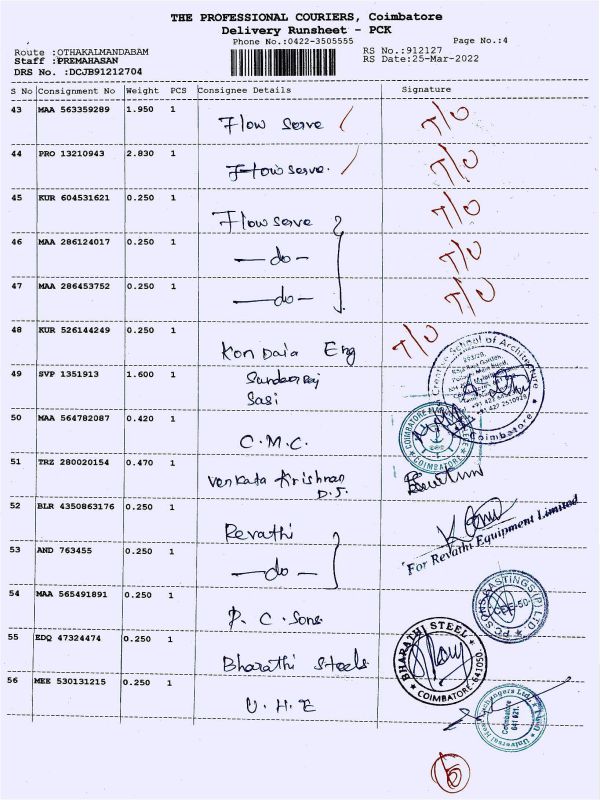 THE PROFESSIONAL COURIERS, Coimbatore
Delivery Runsheet - PCK
Phone No.:0422-3505555 Page No.:4
Route :OTHAKALMANDABAM RS No.:912127
Staff :PREMAHASAN RS Date:25-Mar-2022
DRS No. :DCJB91212704
S No Consignment No Weight PCS Consignee Details Signature
43 MAA 563359289 1.950 1 Flow serve T/O
44 PRO 13210943 2.830 1 Flow serve. T/O
45 KUR 604531621 0.250 1 Flow serve T/O
46 MAA 286124017 0.250 1 —do— T/O
47 MAA 286453752 0.250 1 —do— T/O
48 KUR 526144249 0.250 1 Kon Daia Eng T/O
49 SVP 1351913 1.600 1 Sundar Raj
Sasi
Creative School of Architecture
Coimbatore
50 MAA 564782087 0.420 1 C.M.C.
COIMBATORE
51 TRZ 280020154 0.470 1 Venkata Krishnan
D.J.
52 BLR 4350863176 0.250 1 Revathi
For Revathi Equipment Limited
53 AND 763455 0.250 1 —do—
54 MAA 565491891 0.250 1 P. C. Sons
PC SONS CASTINGS (P) LTD
55 EDQ 47324474 0.250 1 Bharathi Steels
BHARATHI STEEL
COIMBATORE-641050
56 MEE 530131215 0.250 1 U.H.E
Coimbatore
641 021.
6